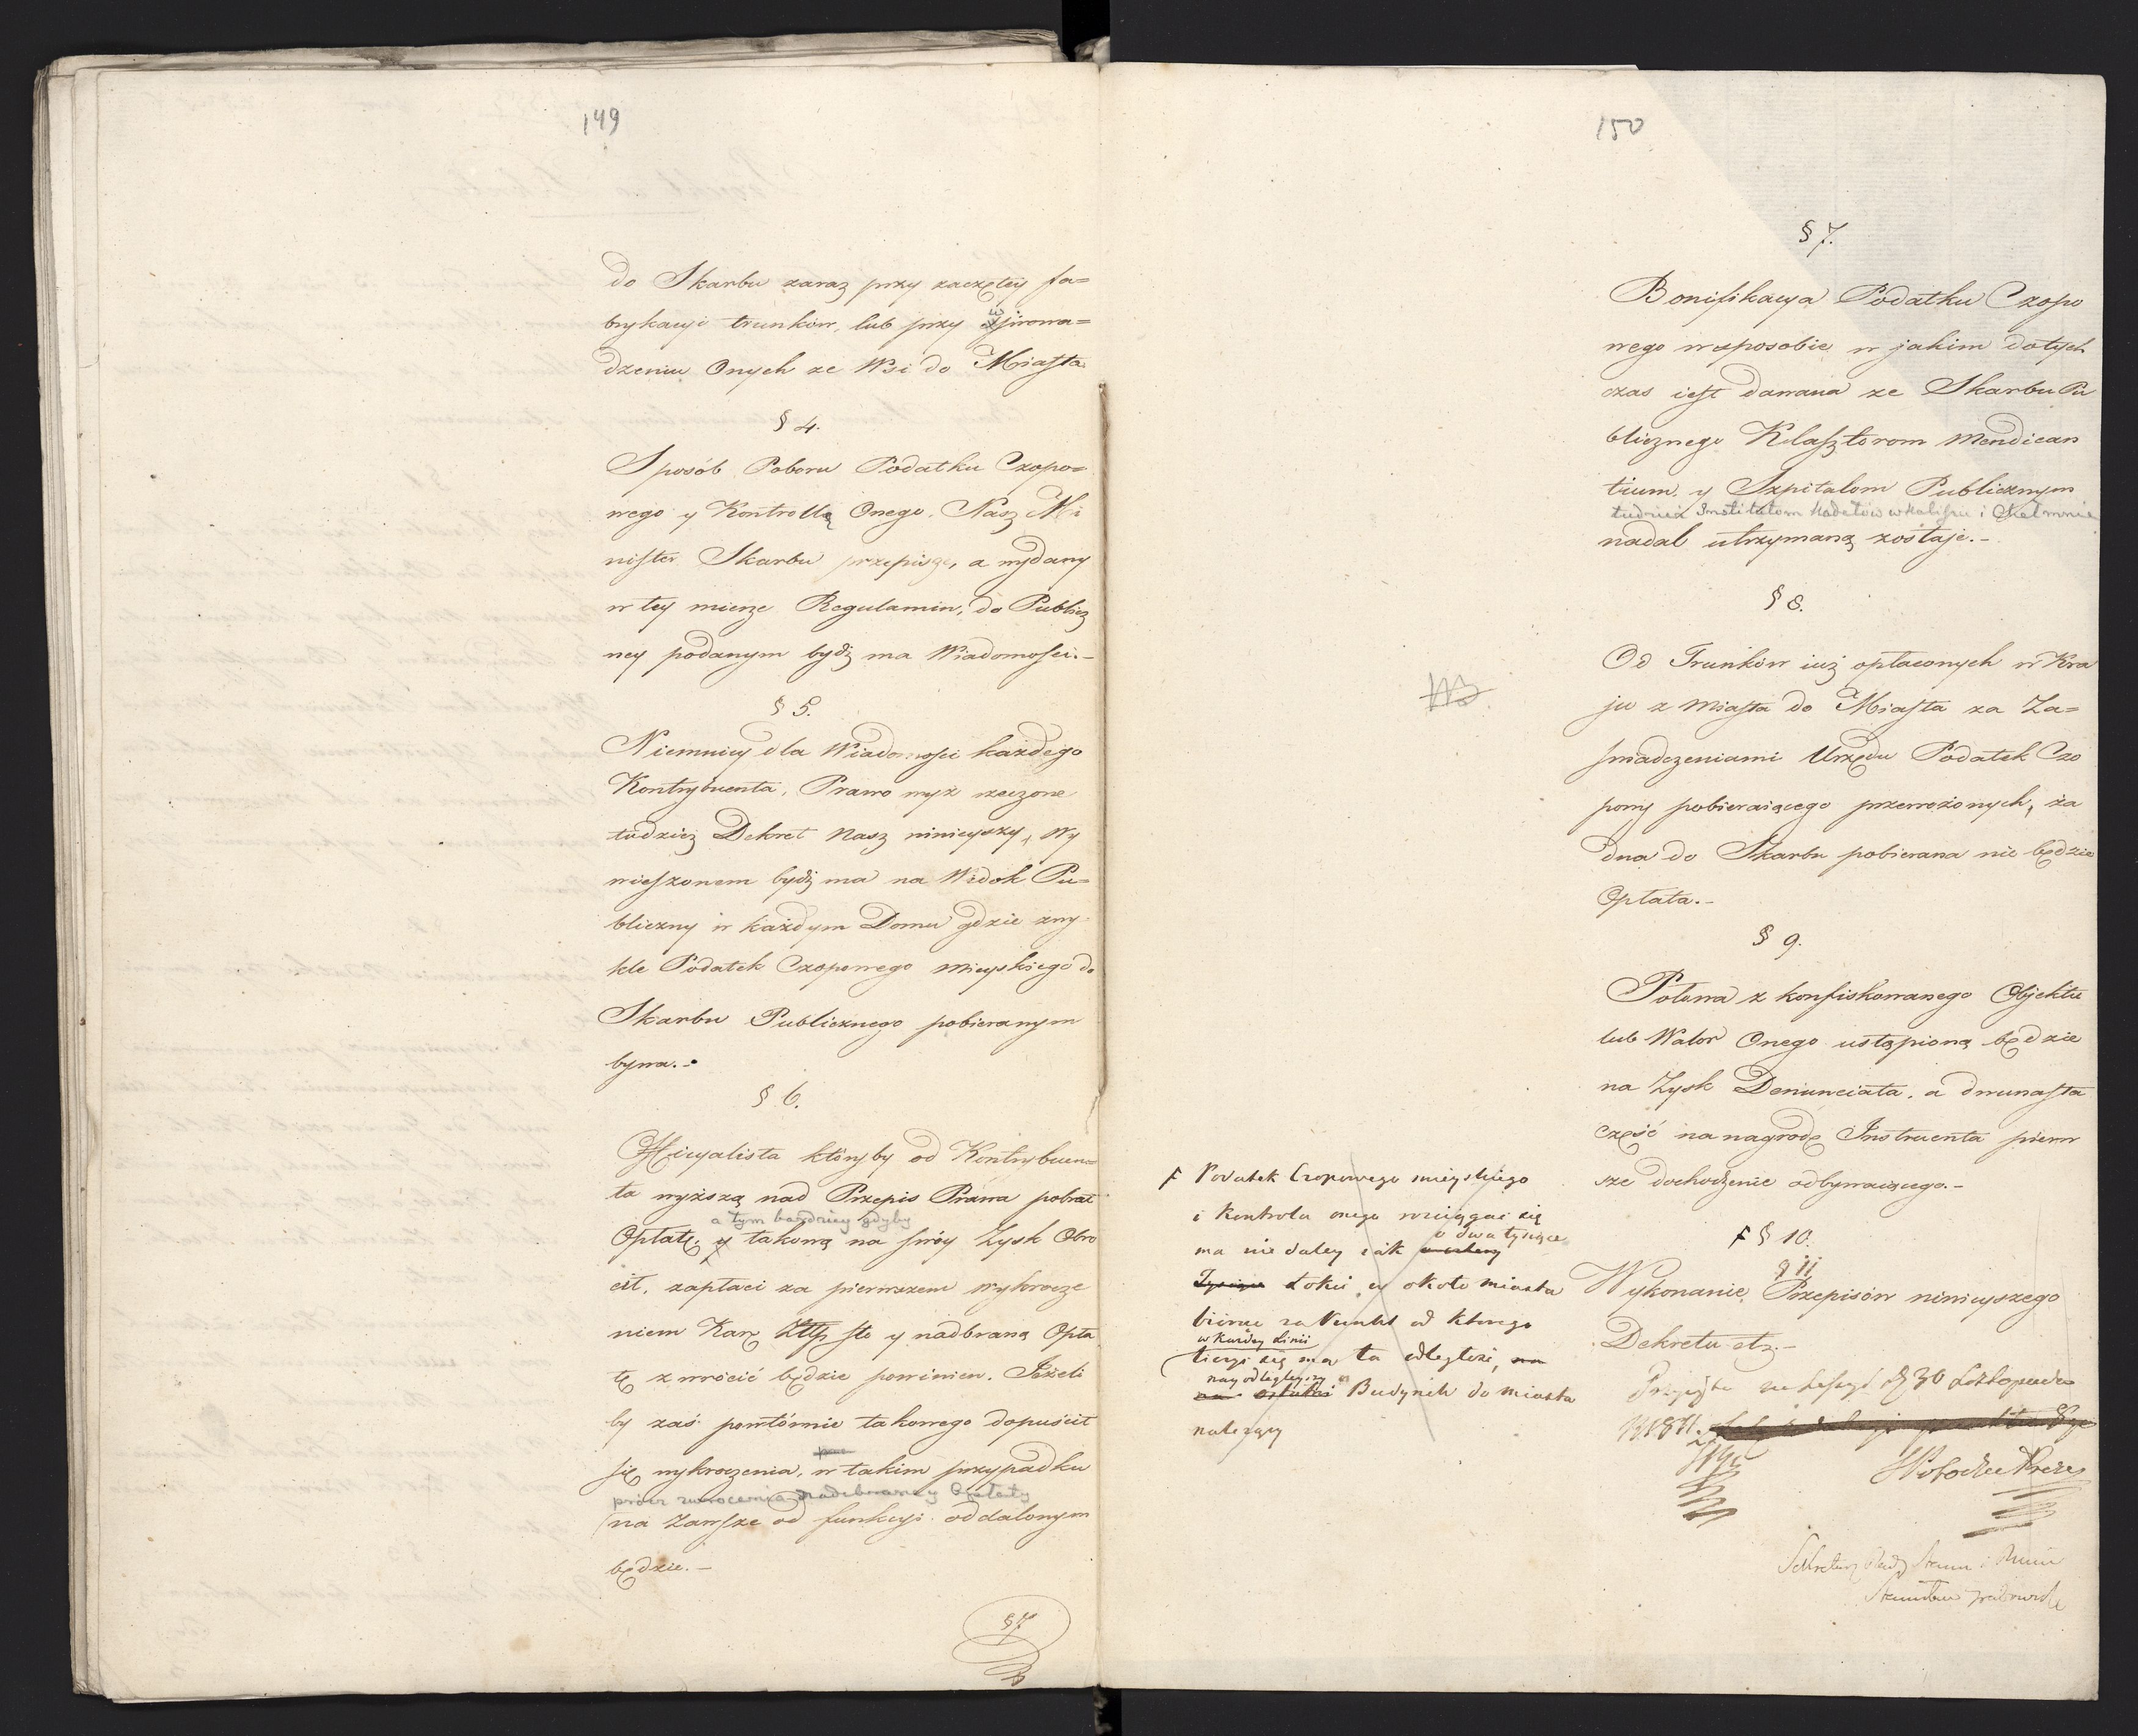 149
do Skarbu zaraz przy zaczętey fa=
brykacyi trunków, lub przy wprowa=
dzeniu Onych ze Wsi do Miasta
§ 4.
Sposób Poboru Podatku Czopo=
wego y Kontrollę Onego, Nasz Mi
nister Skarbu przepisze, a wydany
w tey mierze Regulamin, do Publicz
ney podanym bydź ma Wiadomości.-
§ 5.
Niemniey dla Wiadomości każdego
Kontrybuenta, Prawo wyż rzeczone
tudzież Dekret Nasz ninieyszy, Wy
wieszonem bydź ma na Widok Pu=
bliczny w każdym Domu gdzie zwy
kle Podatek Czopowego mieyskiego do
Skarbu Publicznego pobieranym
bywa.-
§ 6.
Officyalista któryby od Kontrybuen=
ta wyższą nad Przepis Prawa pobrał
a tym bardziey gdyby
Opłatę, y takową na swóy Zysk Obro
cił, zapłaci za pierwszem wykrocze
niem Karę Złłp sto y nadbraną Opła
tę zwrócić będzie powinien. Jeżeli
by zaś powtórnie takowego dopuścił
się wykroczenia, w takim przypadku
prócz zwrócenia nadebraney Opłaty
na Zawsze od funkcyi oddalonym
będzie.-
§ 7.
150
§ 7.
Bonifikacya Podatku Czopo
wego w sposobie w jakim dotych
czas iest dawana ze Skarbu Pu
blicznego Klasztorom Mendican
tium, y Szpitalom Publicznym
tudzież Institutom Kadetów w Kaliszu i Chełmnie
nadal utrzymaną zostaje.-
§ 8.
Od Trunków iuż opłaconych w Kra
ju z Miasta do Miasta za Za=
swiadczeniami Urzędu Podatek Czo
powy pobieraiącego przewożonych, ża
dna do Skarbu pobierana nie będzie
Opłata.-
§ 9.
Połowa z konfiskowanego Objektu
lub Walor Onego ustąpioną będzie
na Zysk Denunciata, a dwunasta
część na nagrodę Instruenta pierw
sze dochodzenie odbywaiącego.-
F Podatek Czopowego mieyskiego
i Kontrola onego rozciągać się
o dwa tysiące
ma nie daley iak
Tysiące Łokci w około miasta
biorąc za Punkt od którego
w każdey Linii
liczyć się ma ta odległość, na
nayodlegleyszy
Budynek do miasta
należący
F § 10.
§ 11
Wykonanie Przepisów ninieyszego
Dekretu etz.-
Przyjęta na Sessyi d. 30 Listopada
1811.
Sekretarz Rady Stanu i Mini